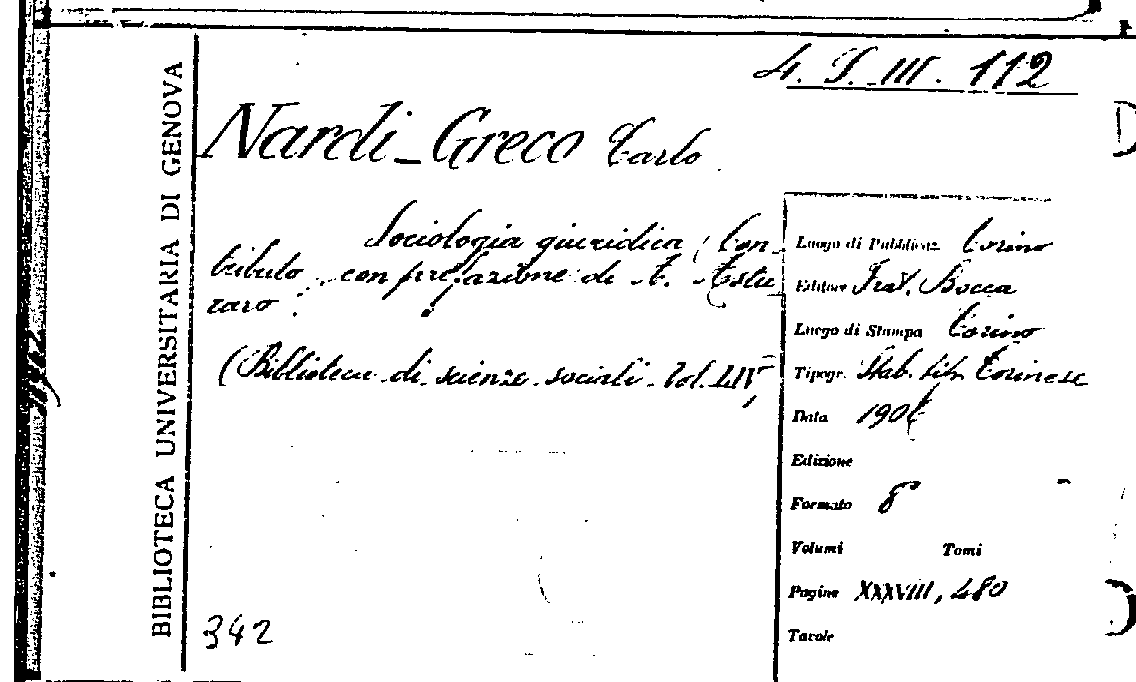 4. I. III. 112
BIBLIOTECA UNIVERSITARIA DI GENOVA
Nardi-Greco Carlo
Sociologia giuridica (Con-
tributo con prefazione di A. Astu-
raro
(Biblioteca di scienze sociali - Vol. LIV)
342
Luogo di Pubblicaz. Torino
Editore Frat. Bocca
Luogo di Stampa Torino
Tipogr. Stab. tip. Torinese
Data
Edizione
Formato 8°
Volumi Tomi
Pagine XXXVIII, 480
Tavole